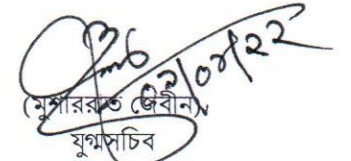 ০২/০৮/২২
(মুশাররাত জেবীন)
যুগ্মসচিব